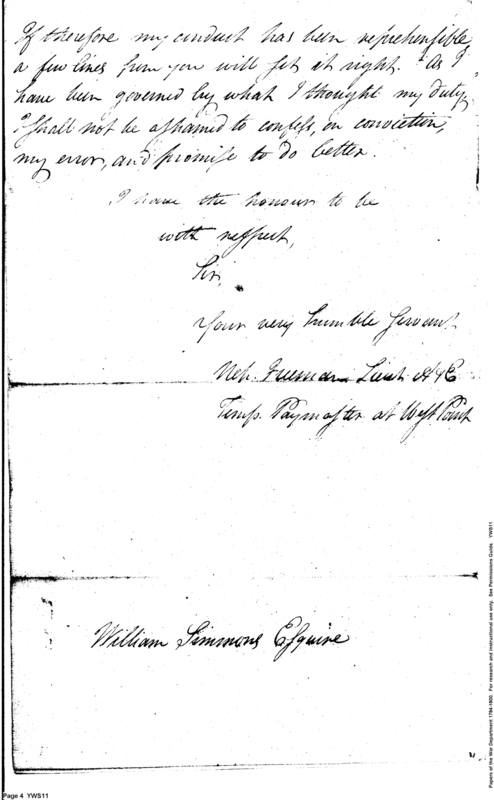 If therefore my conduct has been reprehensible,
a few lines from you will set it right. As I
have been governed by what I thought my duty,
I shall not be ashamed to confess, on conviction,
my error, and promise to do better.
I have the honour to be
with respect,
Sir,
Your very humble Servant
Neh. Freeman Lieut A&E
Temp. Paymaster at West Point
William Simmons Esquire
Page 4 YWS11
Papers of the War Department 1784-1800. For research and institutional use only. See Permissions Guide. YWS11